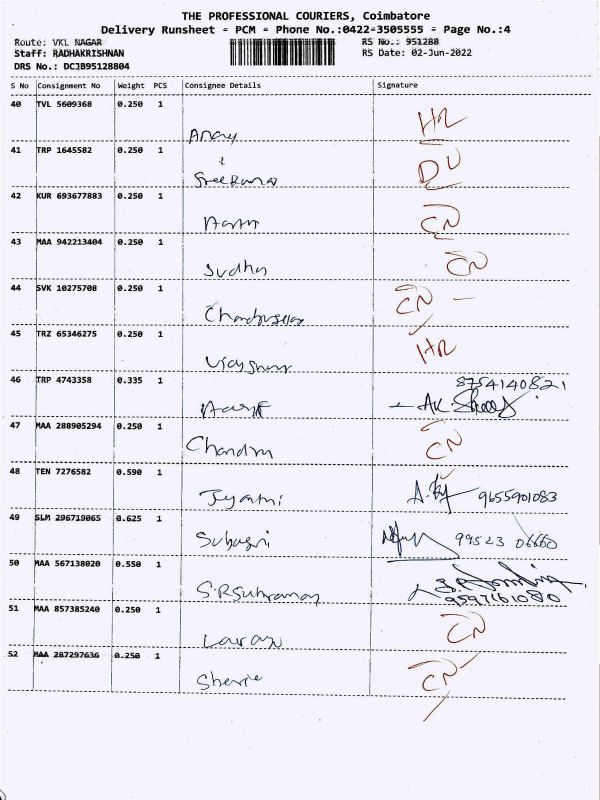 THE PROFESSIONAL COURIERS, Coimbatore
Delivery Runsheet = PCM = Phone No.:0422-3505555 = Page No.:4
Route: VKL NAGAR RS No.: 951288
Staff: RADHAKRISHNAN RS Date: 02-Jun-2022
DRS No.: DCJB95128804
S No Consignment No Weight PCS Consignee Details Signature
40 TVL 5609368 0.250 1 HR
41 TRP 1645582 0.250 1 DL
42 KUR 693677883 0.250 1 CN
43 MAA 942213404 0.250 1 Sudha CN
44 SVK 10275708 0.250 1 CN
45 TRZ 65346275 0.250 1 HR
46 TRP 4743358 0.335 1 8754140821
47 MAA 288905294 0.250 1 Chandra CN
48 TEN 7276582 0.590 1 Jeyanthi 9655901083
49 SLM 296719065 0.625 1 99523 06660
50 MAA 567138020 0.550 1 9597161080
51 MAA 857385240 0.250 1 CN
52 MAA 287297636 0.250 1 CN